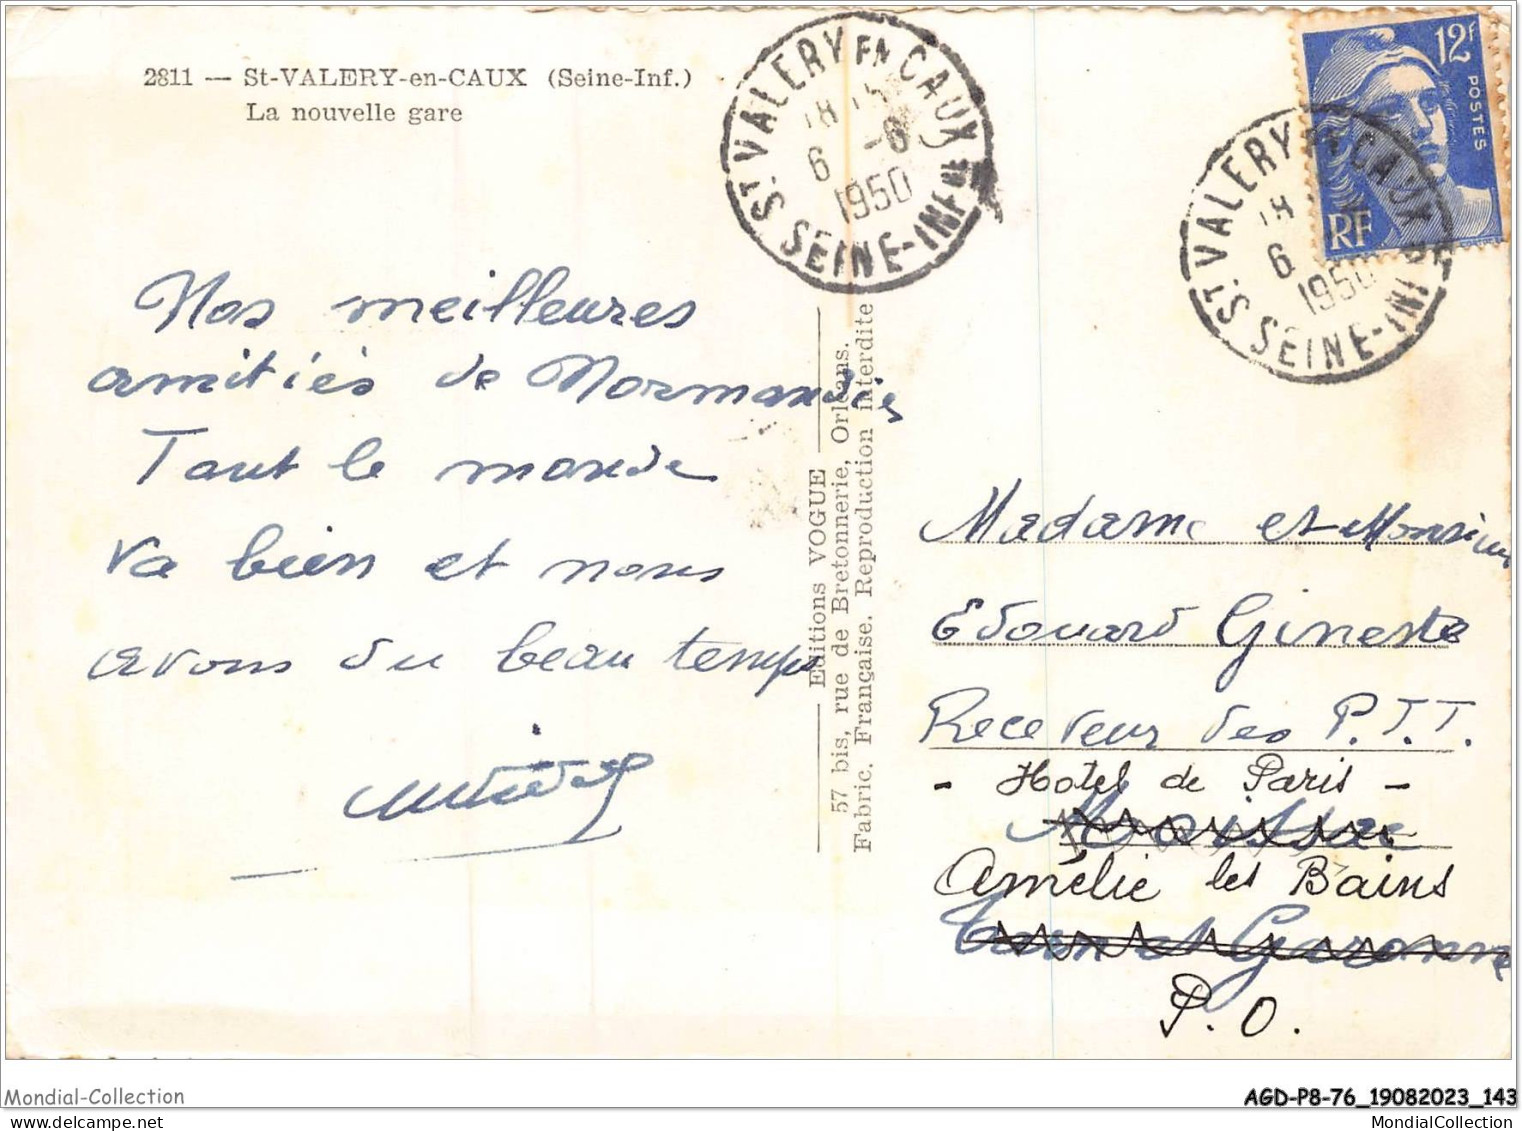 2811 — St-VALERY-en-CAUX (Seine-Inf.)
La nouvelle gare
Nos meilleures
amitiés de Normandie
Tout le monde
va bien et nous
avons du beau temps
Editions VOGUE
57 bis, rue de Bretonnerie, Orléans.
Fabric. Française. Reproduction interdite
ST. VALERY EN CAUX
18
6 -6
1950
SEINE-INFRE
12F
POSTES
RF
ST. VALERY EN CAUX
18
6
1950
SEINE-INF
Madame et Monsieur
Edouard Gineste
Receveur des P.T.T.
- Hotel de Paris -
Moissac
Amélie les Bains
Tarn et Garonne
P.O.
Mondial-Collection
AGD-P8-76_19082023_143
mondial-collection
MondialCollection